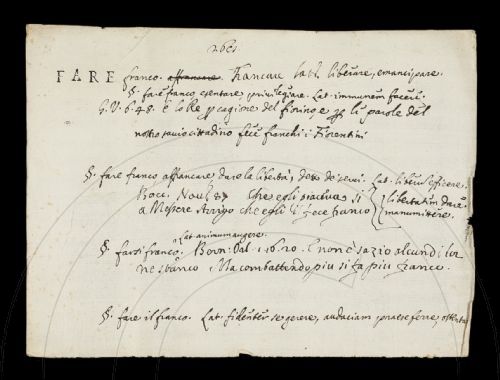 FARE franco. affrancare. Francare lat. liberare, emancipare.
§. fare franco esentare, privilegiare. Lat. immunem facere.
G. V. 6. 48. e lo Re p cagione del fiorino e p li parole del
nostro savio cittadino fece franchi i Fiorentini
§. fare franco affrancare dare la libertà, detto de' servi. Lat. liberum efficere.
Bocc. Nov. Che egli piaceva si libertatem dare
a Messere Arrigo che egli il fece franco manumittere.
Lat. animum augere.
§. farsi franco. Born. Sal. 1. 16. 20. E non è sazio alcun di tor
ne sbanco, Ma combattendo più si fa più franco.
§. fare il franco. Lat. fidenter se gerere, audaciam praeseferre,